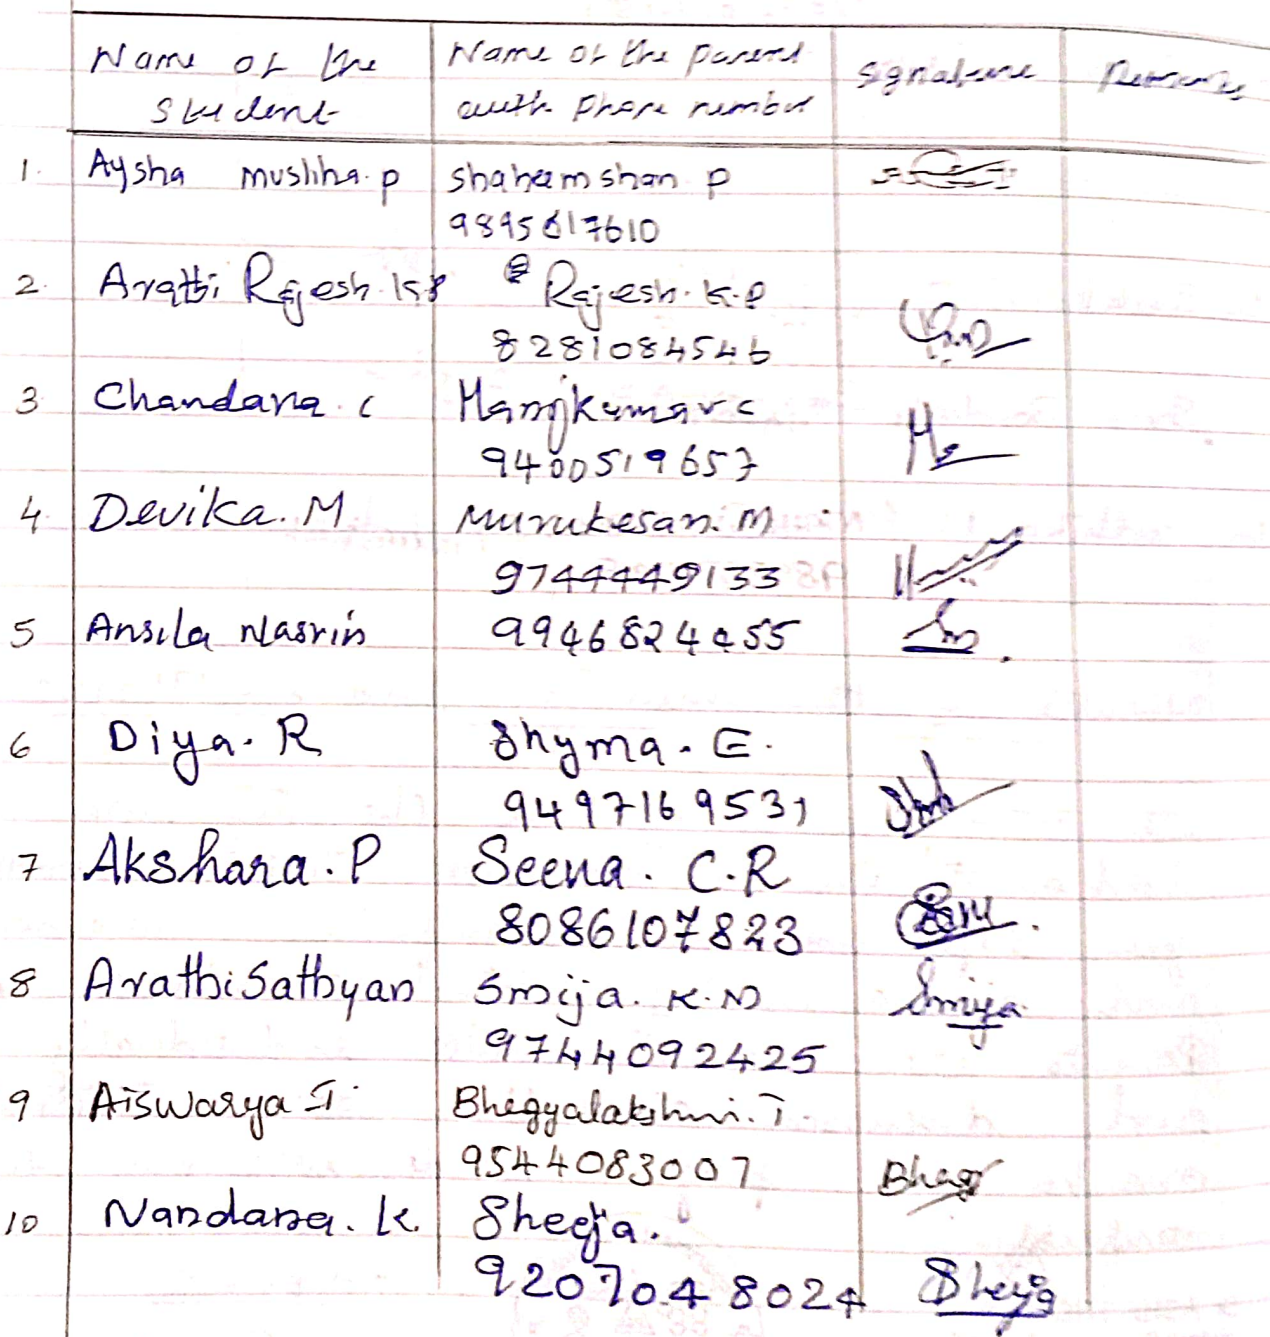 Name of the Student Name of the parent with Phone number Signature Remarks
1. Aysha musliha. p shaheem shan p
9895617610
2. Arathi Rajesh K.P Rajesh. K.P
8281084546
3 Chandana. c Manojkumar c
9400519657
4. Devika. M Murukesan. M
9744449133
5 Ansila Nasrin 9946824455
6 Diya. R Shyma. E.
9497169531
7 Akshara. P Seena. C.R
8086107823
8 Arathi Sathyan Smija. K.N Smija
9744092425
9 Aiswarya T Bhagyalakshmi. T
9544083007 Bhagy
10 Nandana. K. Sheeja.
9207048024 Sheeja